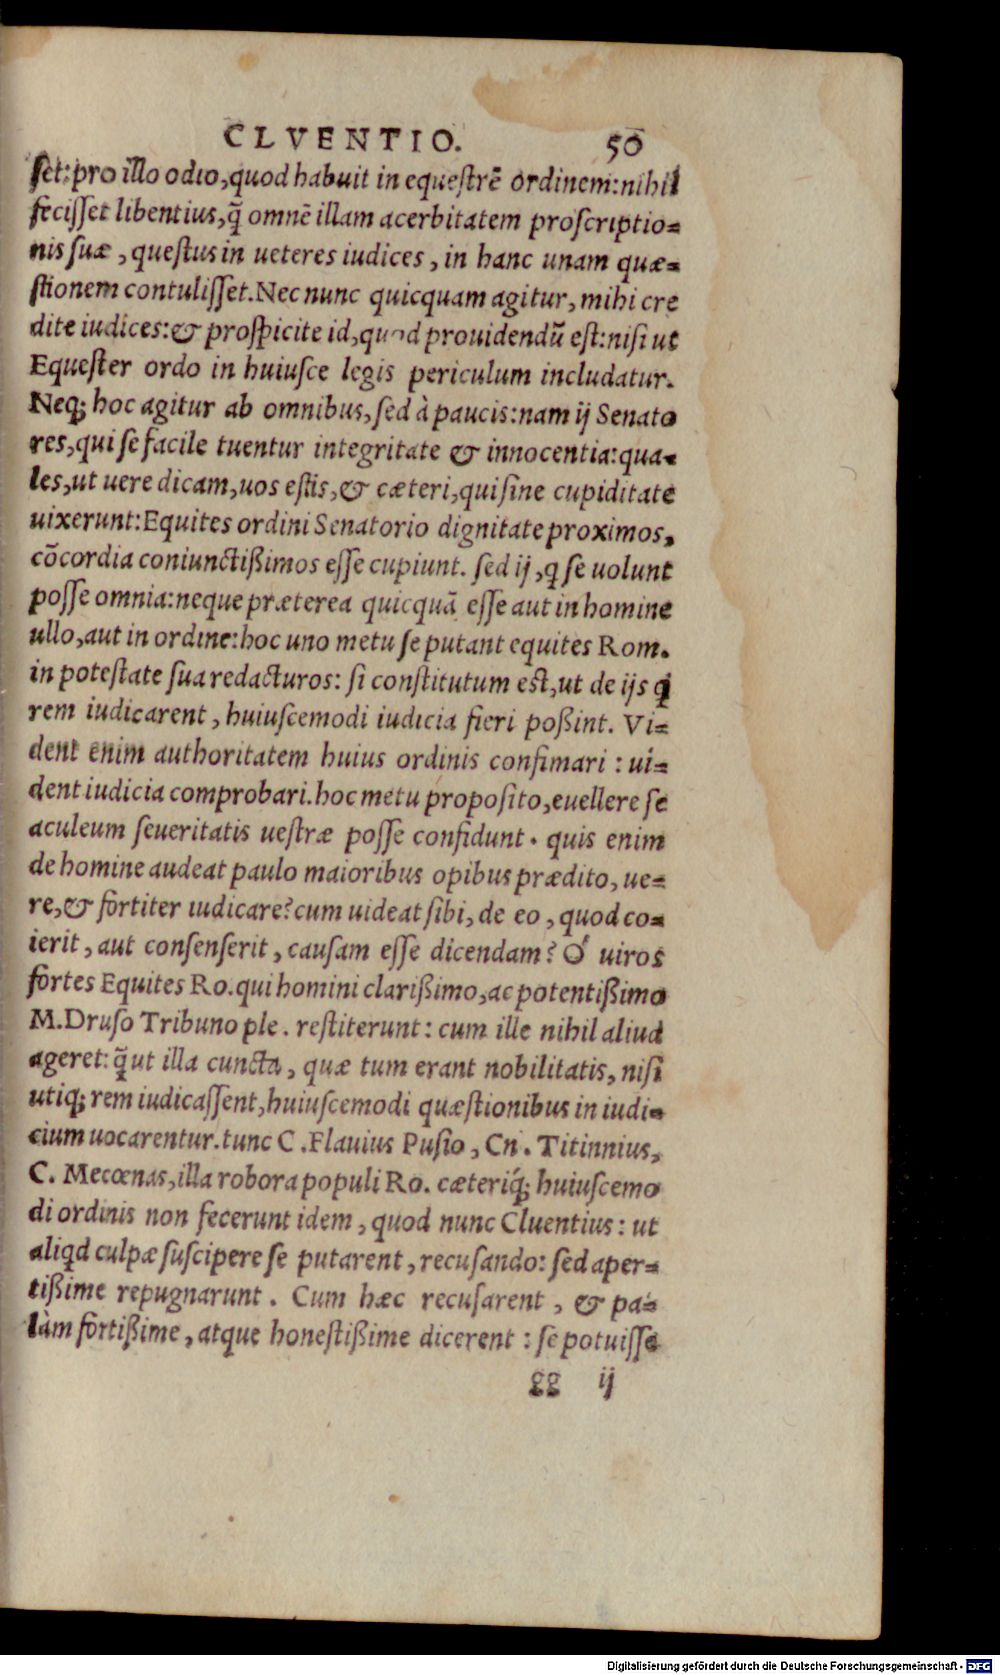 CLVENTIO. 50
ſet: pro illo odio, quod habuit in equeſtrē ordinem: nihil
feciſſet libentius, q̃ omnē illam acerbitatem proſcriptio=
nis ſuæ, queſtus in ueteres iudices, in hanc unam quæ=
ſtionem contuliſſet. Nec nunc quicquam agitur, mihi cre
dite iudices: & proſpicite id, quod prouidendũ eſt: niſi ut
Equeſter ordo in huiuſce legis periculum includatur.
Neq; hoc agitur ab omnibus, ſed à paucis: nam ij Senato
res, qui ſe facile tuentur integritate & innocentia: qua=
les, ut uere dicam, uos eſtis, & cæteri, qui ſine cupiditate
uixerunt: Equites ordini Senatorio dignitate proximos,
cõcordia coniunctißimos eſſe cupiunt. ſed ij, q ſe uolunt
poſſe omnia: neque præterea quicquã eſſe aut in homine
ullo, aut in ordine: hoc uno metu ſe putant equites Rom.
in poteſtate ſua redacturos: ſi conſtitutum eſt, ut de ijs q
rem iudicarent, huiuſcemodi iudicia fieri poßint. Vi=
dent enim authoritatem huius ordinis confimari: ui=
dent iudicia comprobari. hoc metu propoſito, euellere ſe
aculeum ſeueritatis ueſtræ poſſe confidunt. quis enim
de homine audeat paulo maioribus opibus prædito, ue=
re, & fortiter iudicare? cum uideat ſibi, de eo, quod co=
ierit, aut conſenſerit, cauſam eſſe dicendam? Ó uiros
fortes Equites Ro. qui homini clarißimo, ac potentißimo
M. Druſo Tribuno ple. reſtiterunt: cum ille nihil aliud
ageret: q̃ ut illa cuncta, quæ tum erant nobilitatis, niſi
utiq; rem iudicaſſent, huiuſcemodi quæſtionibus in iudi=
cium uocarentur. tunc C. Flauius Puſio, Cn. Titinnius,
C. Mecœnas, illa robora populi Ro. cæteriq́; huiuſcemo
di ordinis non fecerunt idem, quod nunc Cluentius: ut
aliqd culpæ ſuſcipere ſe putarent, recuſando: ſed aper=
tißime repugnarunt. Cum hæc recuſarent, & pa=
làm fortißime, atque honeſtißime dicerent: ſe potuiſſe
gg ij
Digitalisierung gefördert durch die Deutsche Forschungsgemeinschaft - DFG